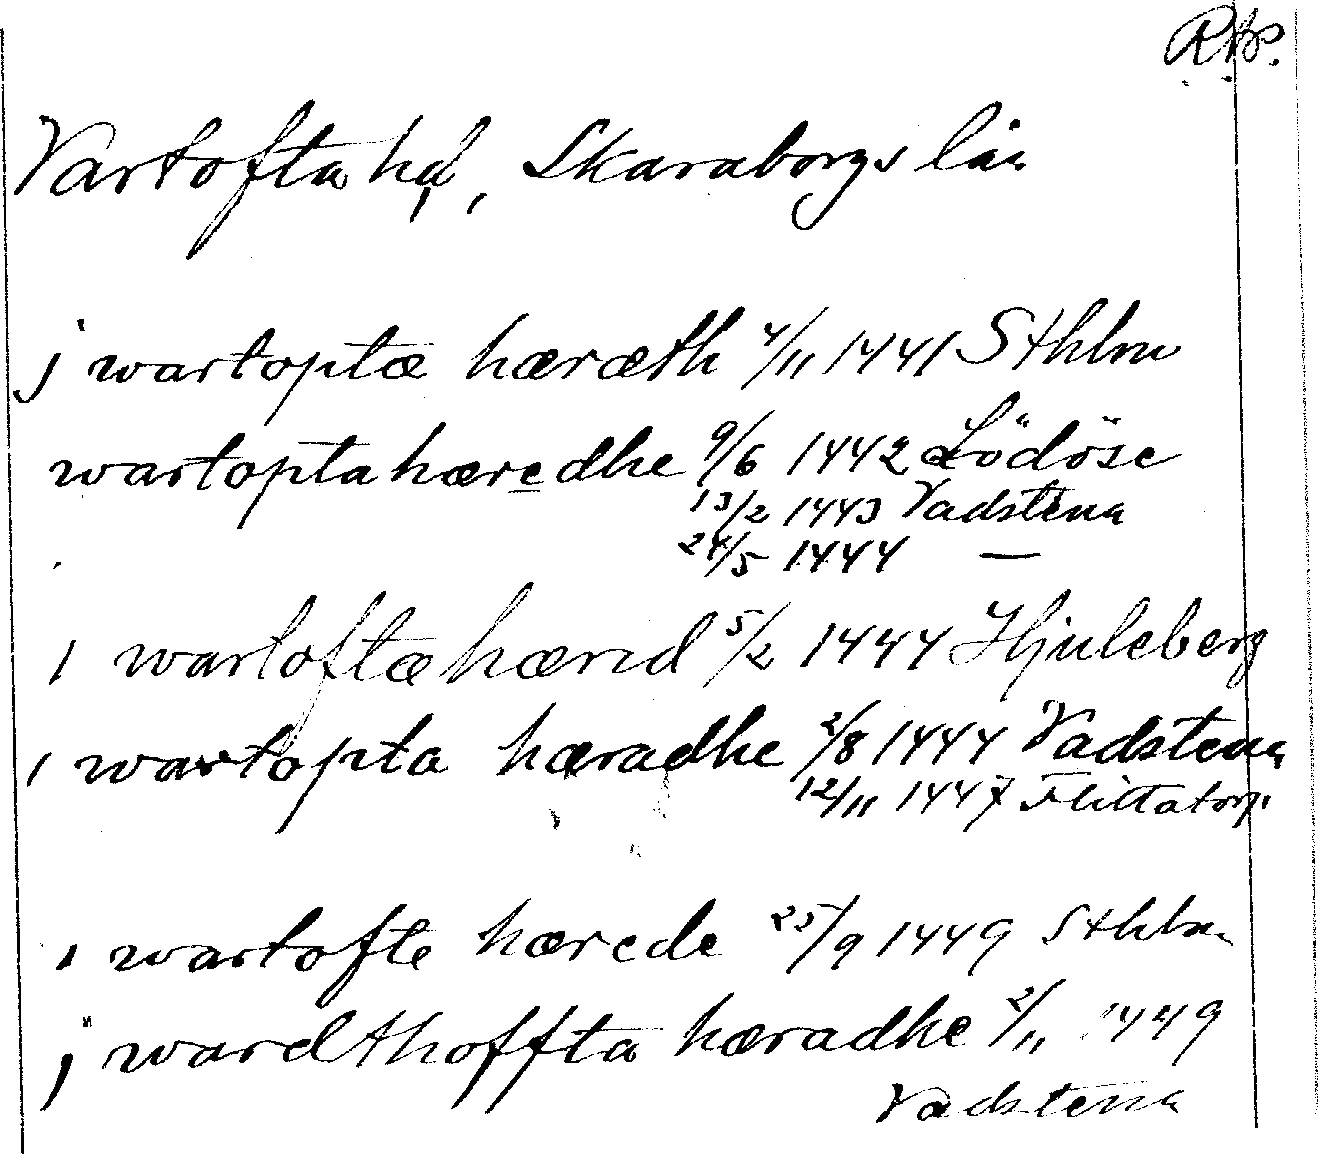 RAP.
Vartofta hd, Skaraborgs län
j wartoptæ hæræth 4/11 1441 Sthlm
wartopta hæredhe 9/6 1442 Lödöse
13/2 1443 Vadstena
24/5 1444 —
i wartoftæ hærid 5/2 1444 Hjuleberg
i wartopta hæradhe 2/8 1444 Vadstena
12/11 1447 Flittatorp
i wartofte hærede 25/9 1449 Sthlm
j wardthoffta hæradhe 2/11 1449
Vadstena